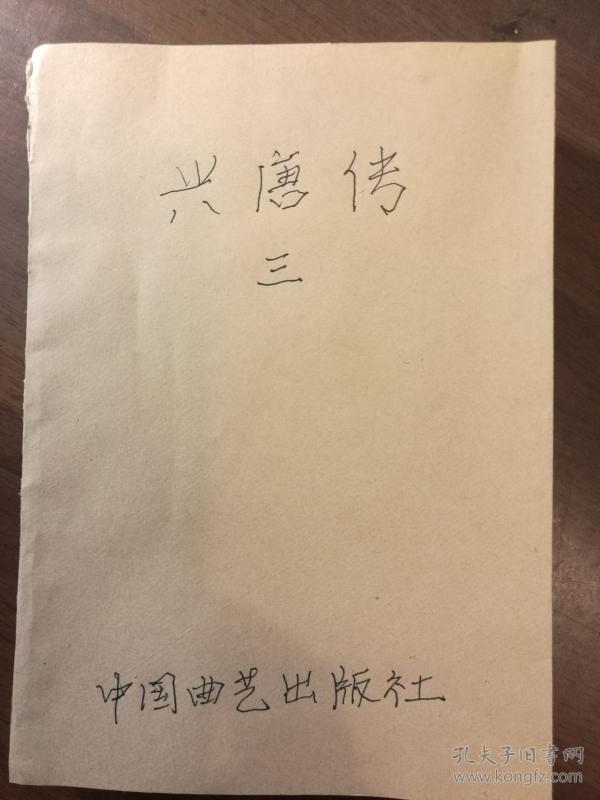 兴唐传
三
中国曲艺出版社
孔夫子旧书网
www.kongfz.com